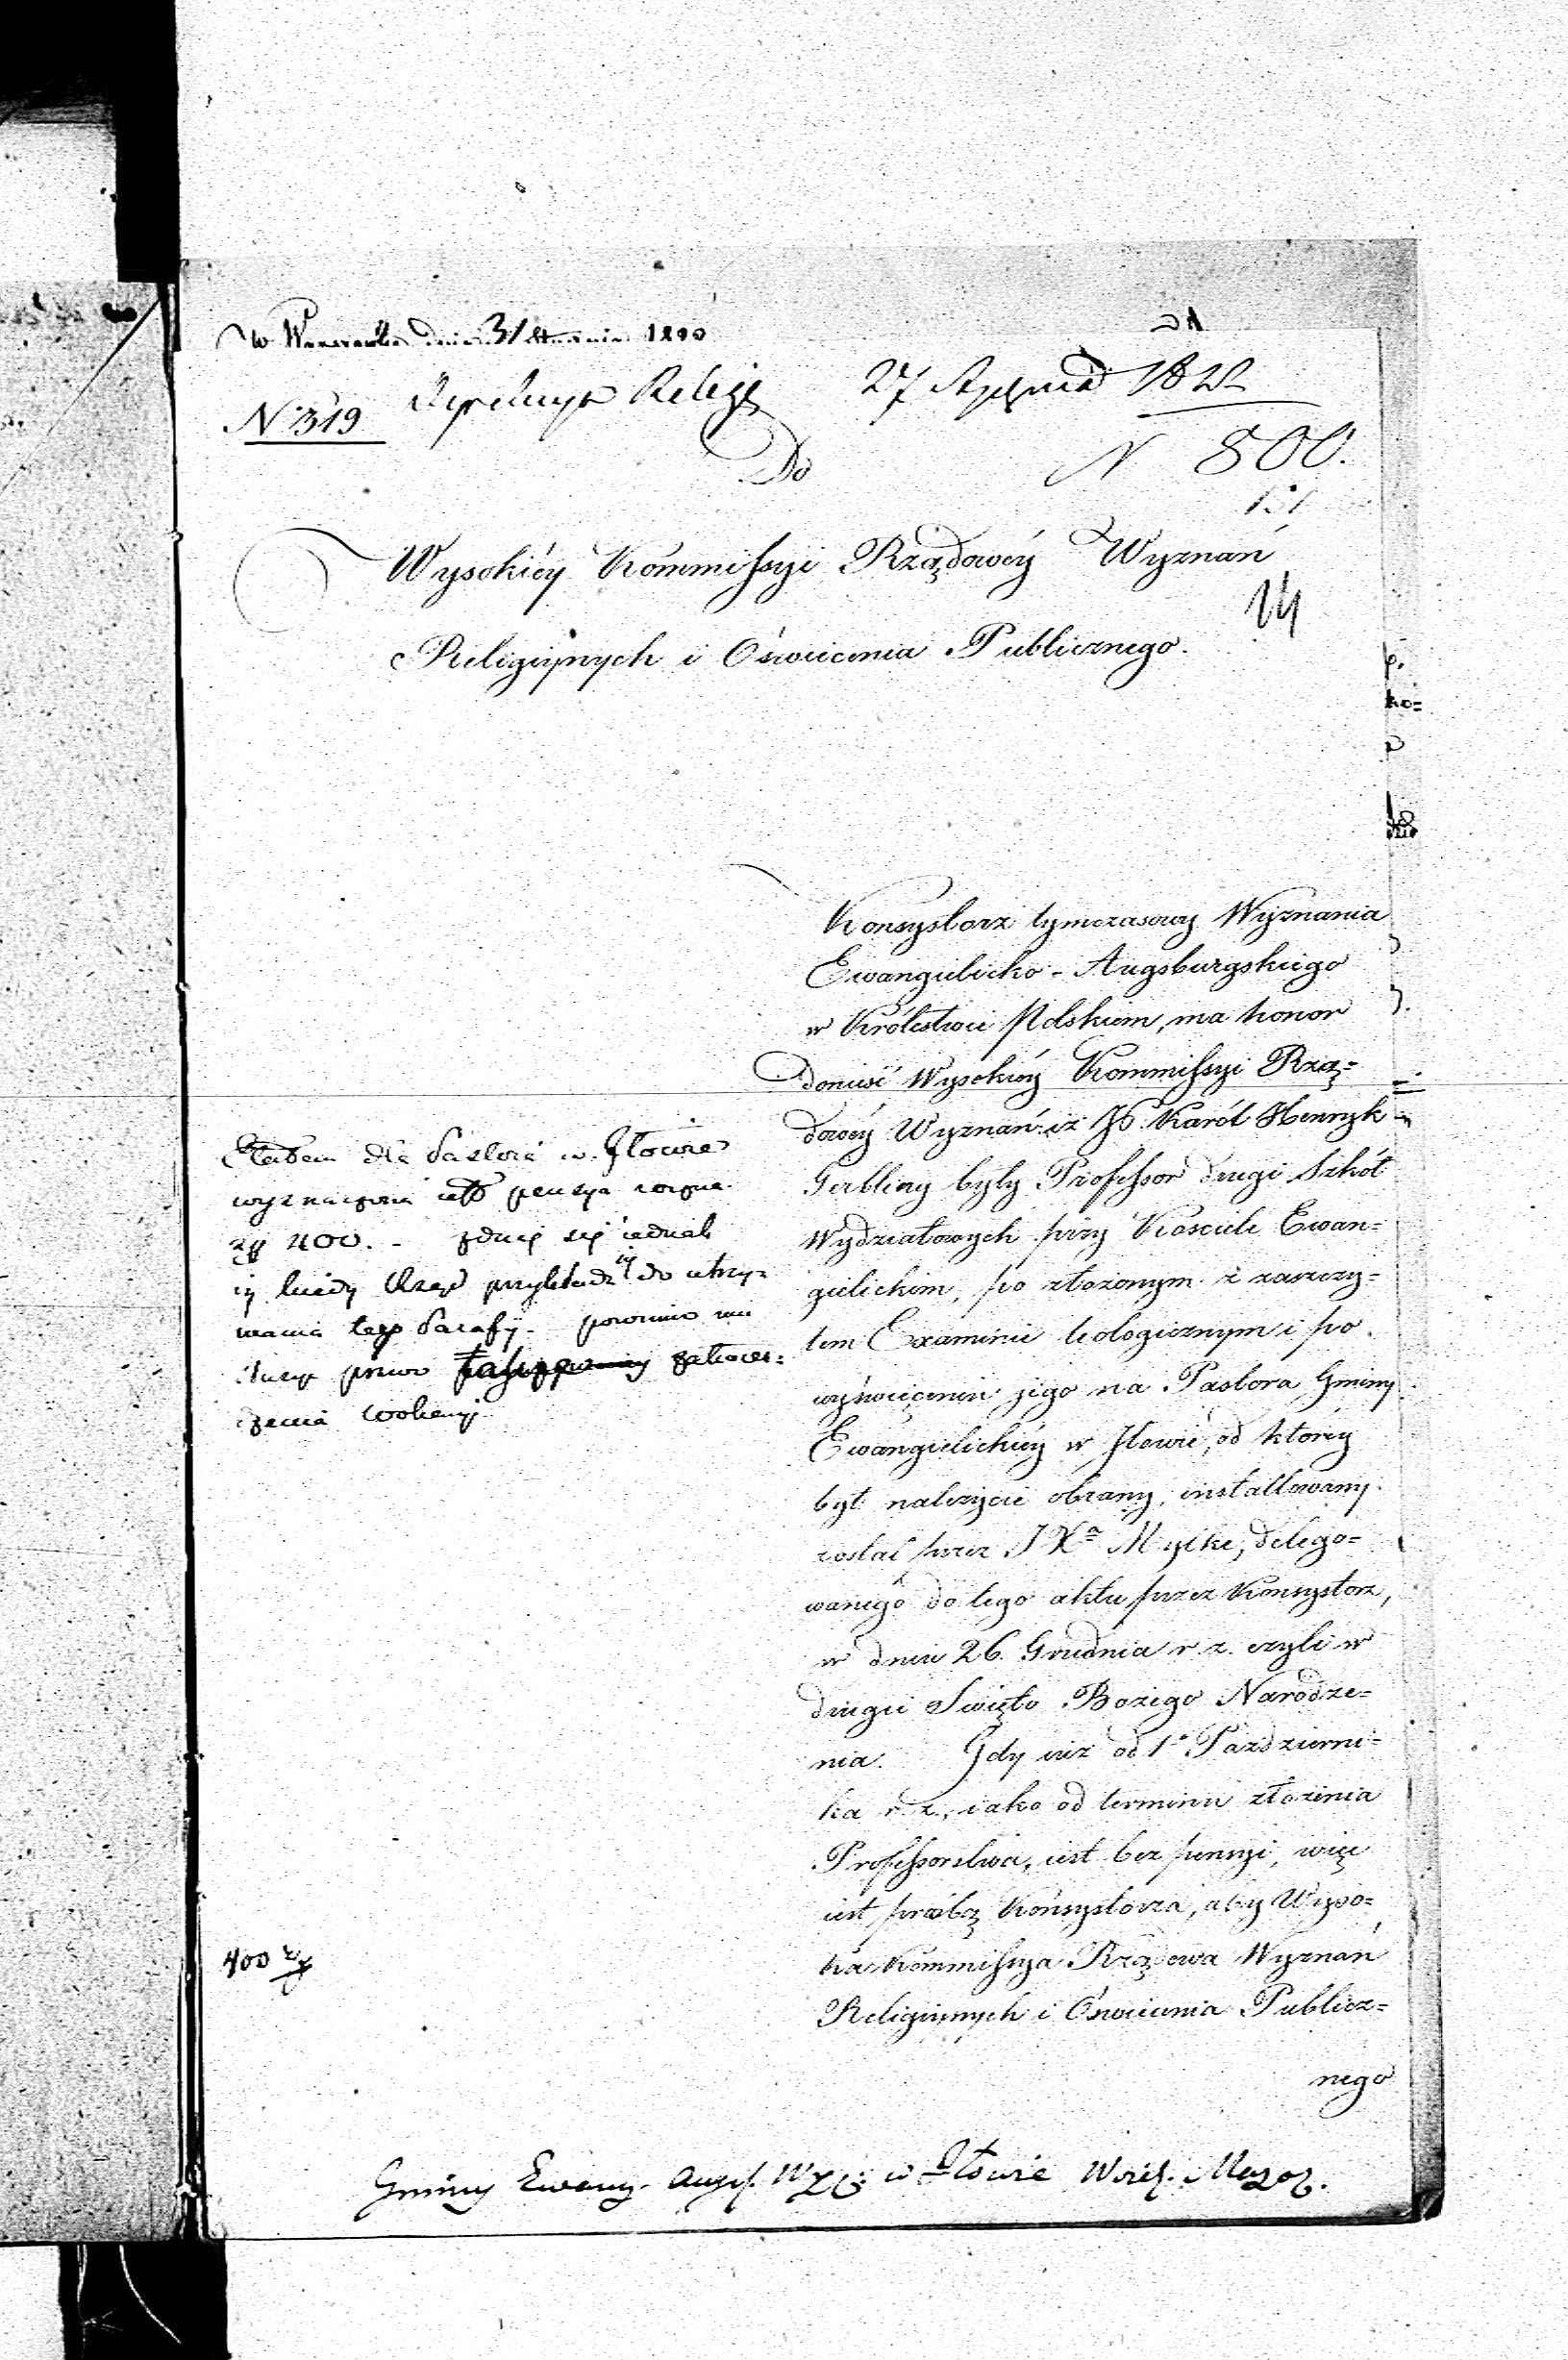 w Warszawie dnia 31 Stycznia 18
27 Stycznia 1822
N 319
Do
N 800.
151
14
Wysokiéy Kommissyi Rządowéy Wyznań
Religiynych i Oświecenia Publicznego.
Konsystorz tymczasowy Wyznania
Ewangielicko-Augsburgskiego
w Królestwie Polskiem, ma honor
donieść Wysokiéy Kommissyi Rzą=
dowéy Wyznań iż JP. Karól Henryk
były Professor drugi Szkół
Wydziałowych przy Kościele Ewan=
gielickim, po złożonym z zaszczy=
tem Examinie teologicznym i po
wyświęceniu jego na Pastora Gminy
Ewangielickiéy w Iłowie, od któréy
był należycie obrany, installowany
został przez JXa Mycke, delego=
wanego do tego aktu przez Konsystorz,
w dniu 26. Grudnia r. z. czyli w
drugie Swięto Bożego Narodze=
nia. Gdy iuż od 1o Październi=
ka r. z., iako od terminu złożenia
Professorstwa, iest bez pensyi, więc
iest prośbą Konsystorza, aby Wyso=
ka Kommissya Rządowa Wyznań
Religiynych i Oświecenia Publicz=
nego
Etatem dla Pastora w Iłowie
wyznaczona iest pensya roczna
zł 400. - zdaie się iednak
iż kiedy Rząd przykłada się do utrzy=
mania tego Parafii - powinno mu
służyć prawo
400 zł
Gminy Ewang. Augs. Wyz: w Iłowie Woiew. Mazow.